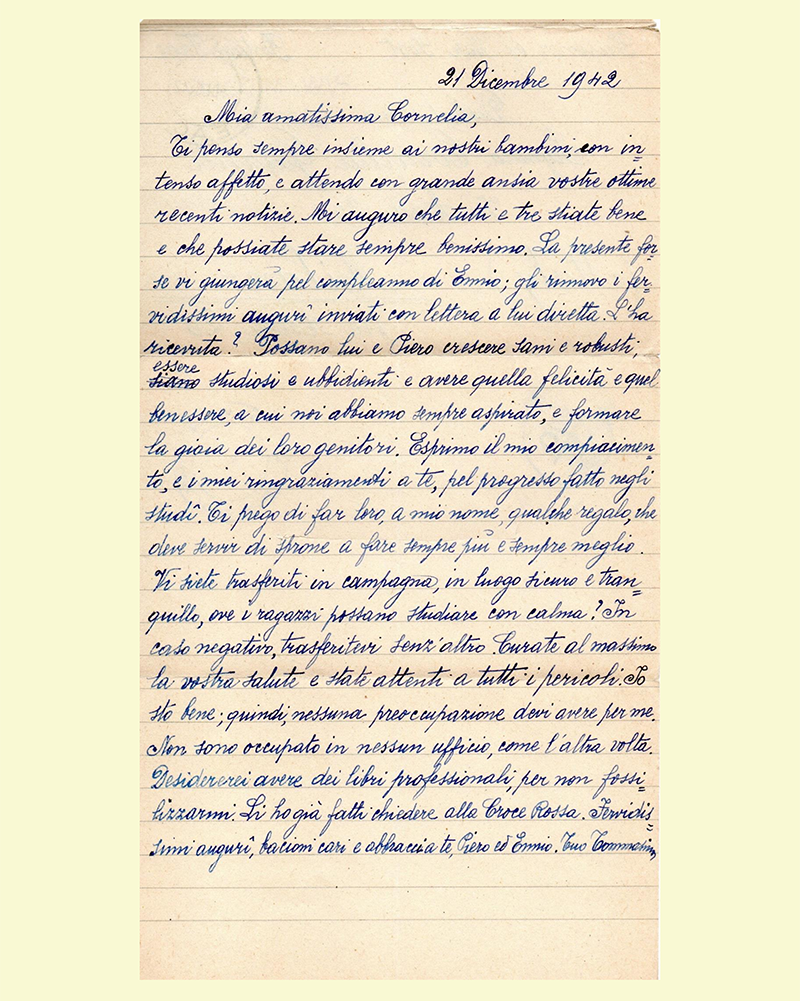 21 Dicembre 1942
Mia amatissima Cornelia,
Ti penso sempre insieme ai nostri bambini, con in=
tenso affetto, e attendo con grande ansia vostre ottime
recenti notizie. Mi auguro che tutti e tre stiate bene
e che possiate stare sempre benissimo. La presente for=
se vi giungerà pel compleanno di Ennio; gli rinnovo i fer=
vidissimi augurî inviati con lettera a lui diretta. L'ha
ricevuta? Possano lui e Piero crescere sani e robusti,
essere
siano studiosi e ubbidienti e avere quella felicità e quel
benessere, a cui noi abbiamo sempre aspirato, e formare
la gioia dei loro genitori. Esprimo il mio compiacimen=
to, e i miei ringraziamenti a te, pel progresso fatto negli
studî. Ti prego di far loro, a mio nome, qualche regalo, che
deve servir di sprone a fare sempre più e sempre meglio.
Vi siete trasferiti in campagna, in luogo sicuro e tran=
quillo, ove i ragazzi possano studiare con calma? In
caso negativo, trasferitevi senz'altro. Curate al massimo
la vostra salute e state attenti a tutti i pericoli. Io
sto bene; quindi, nessuna preoccupazione devi avere per me.
Non sono occupato in nessun ufficio, come l'altra volta.
Desidererei avere dei libri professionali, per non fossi=
lizzarmi. Li ho già fatti chiedere alla Croce Rossa. Fervidis=
simi augurî, bacioni cari e abbracci a te, Piero ed Ennio. Tuo Tommasino